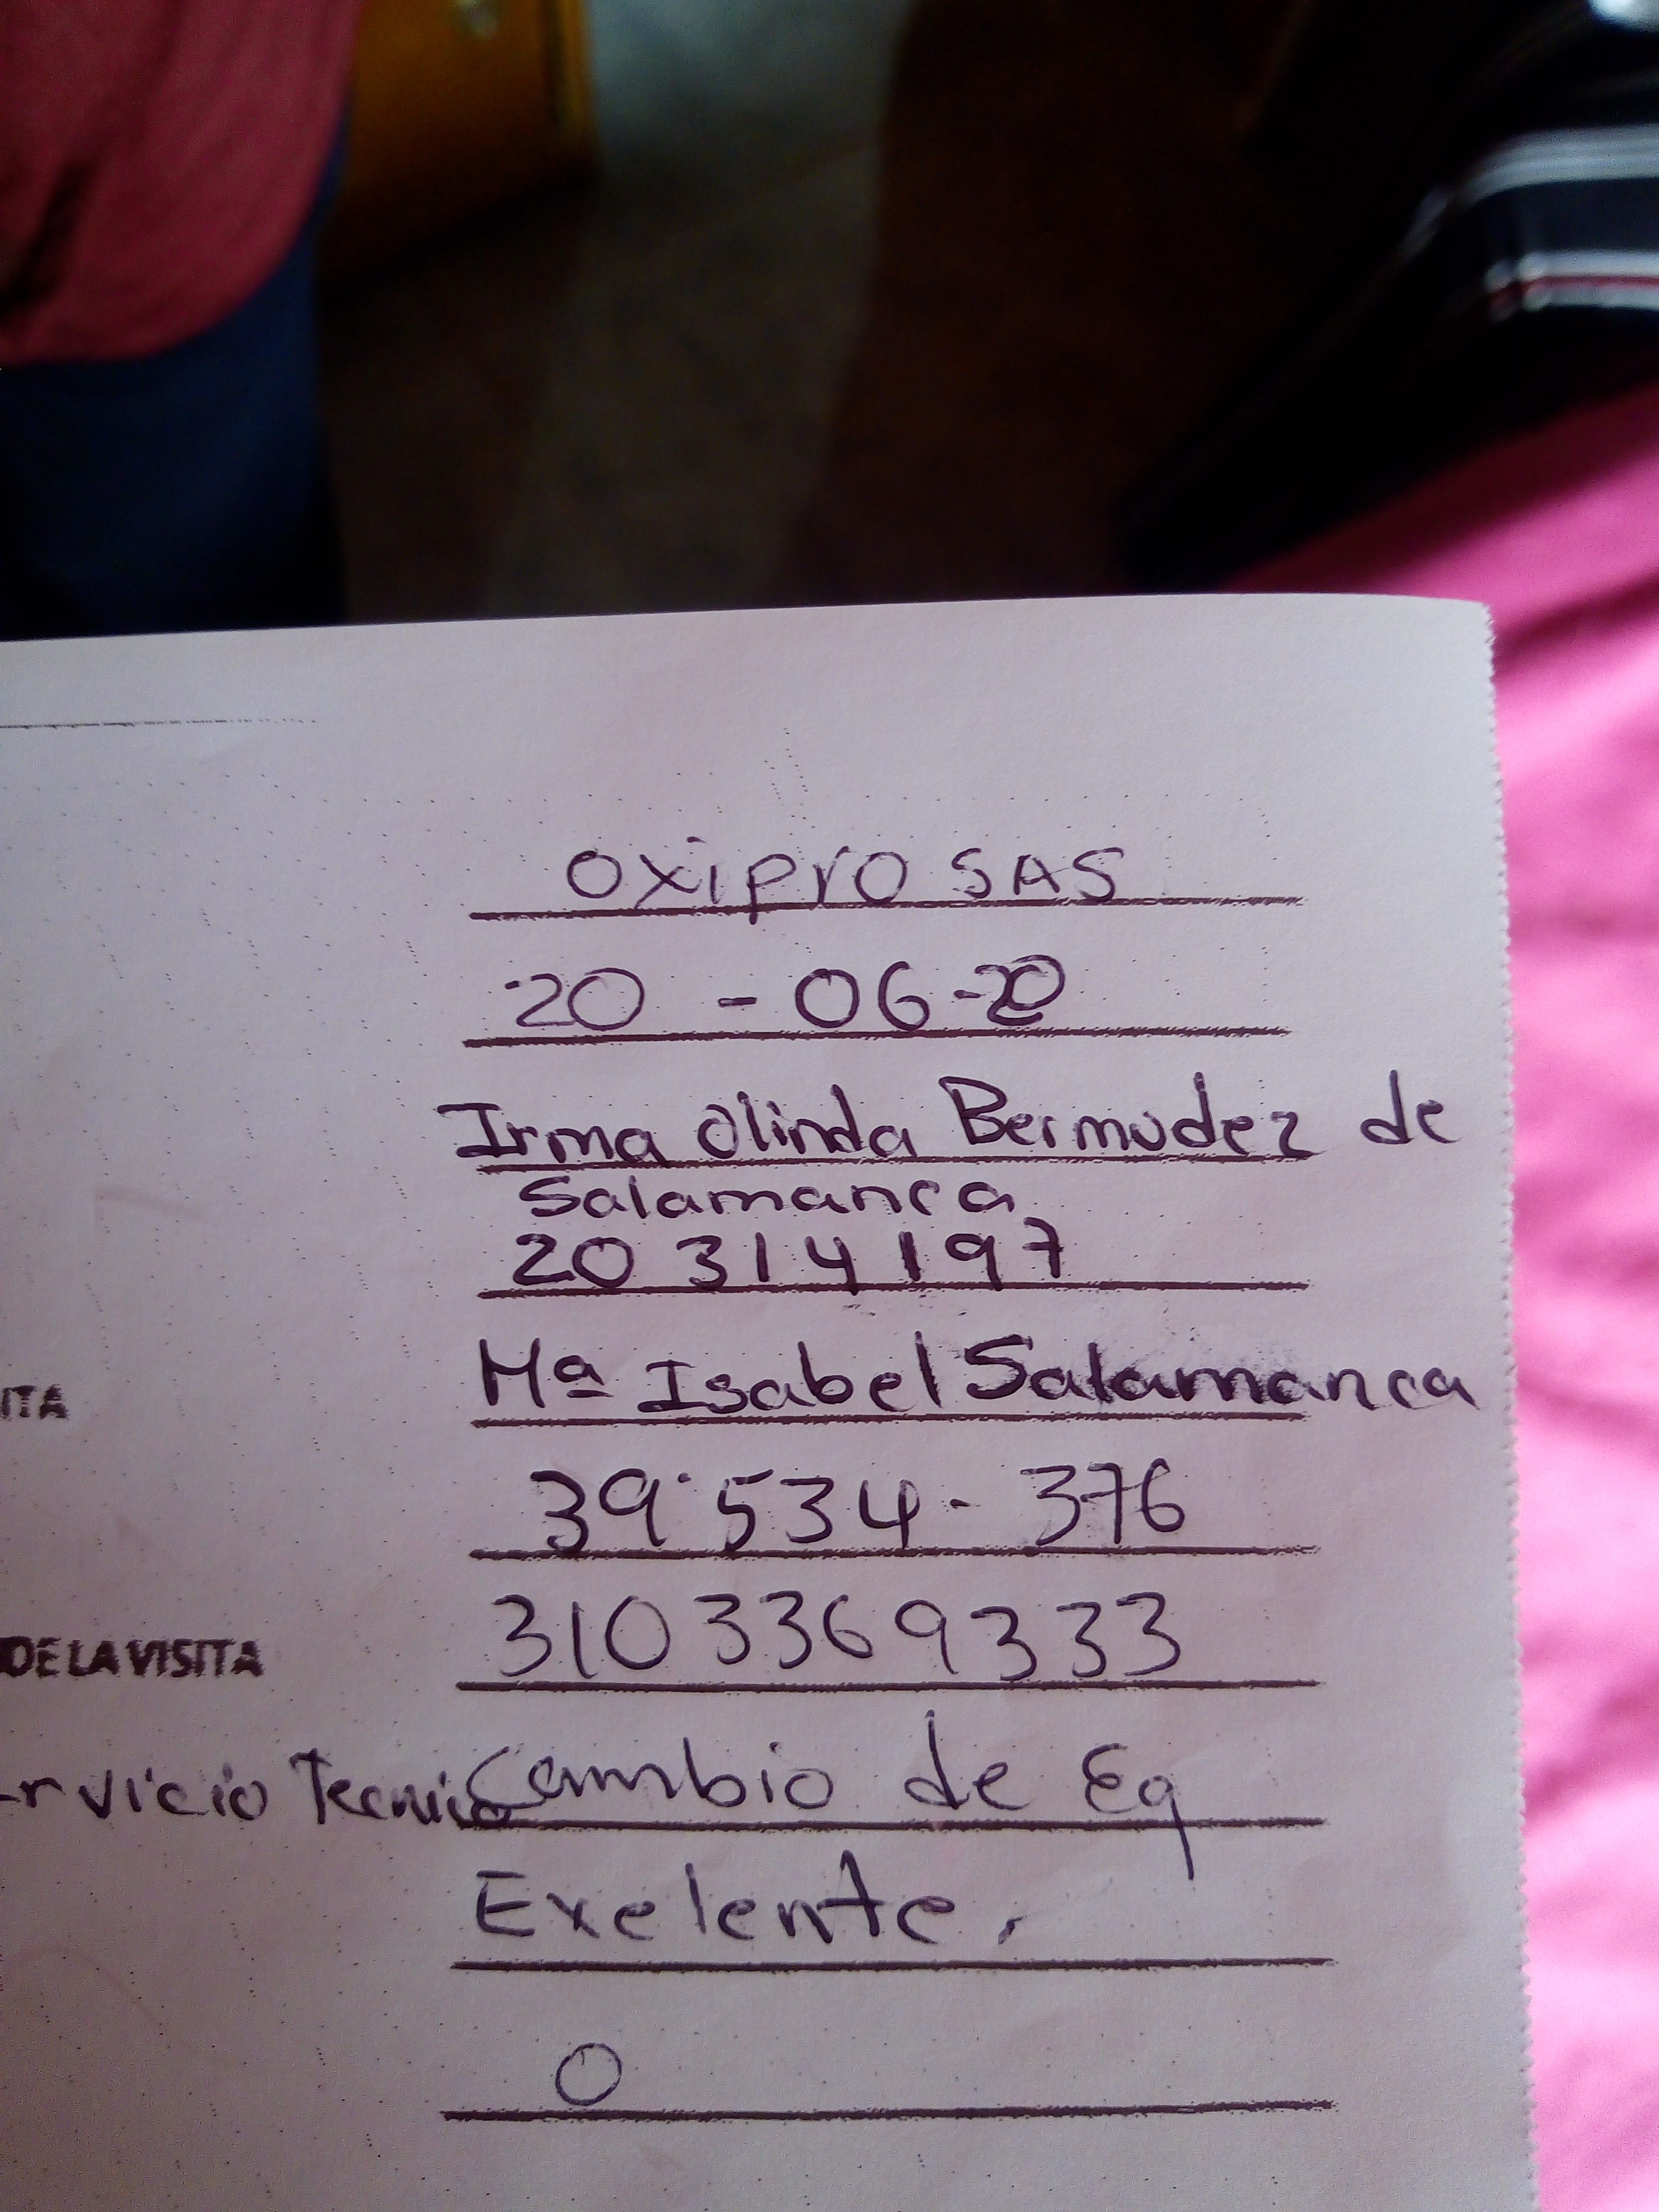 OXIPRO SAS
20 - 06-20
Irma Olinda Bermudez de
Salamanca
20 314 197
ITA Mª Isabel Salamanca
39'534- 376
DE LA VISITA 310 3369333
rvicio Tecnico Cambio de Eq
Exelente.
0